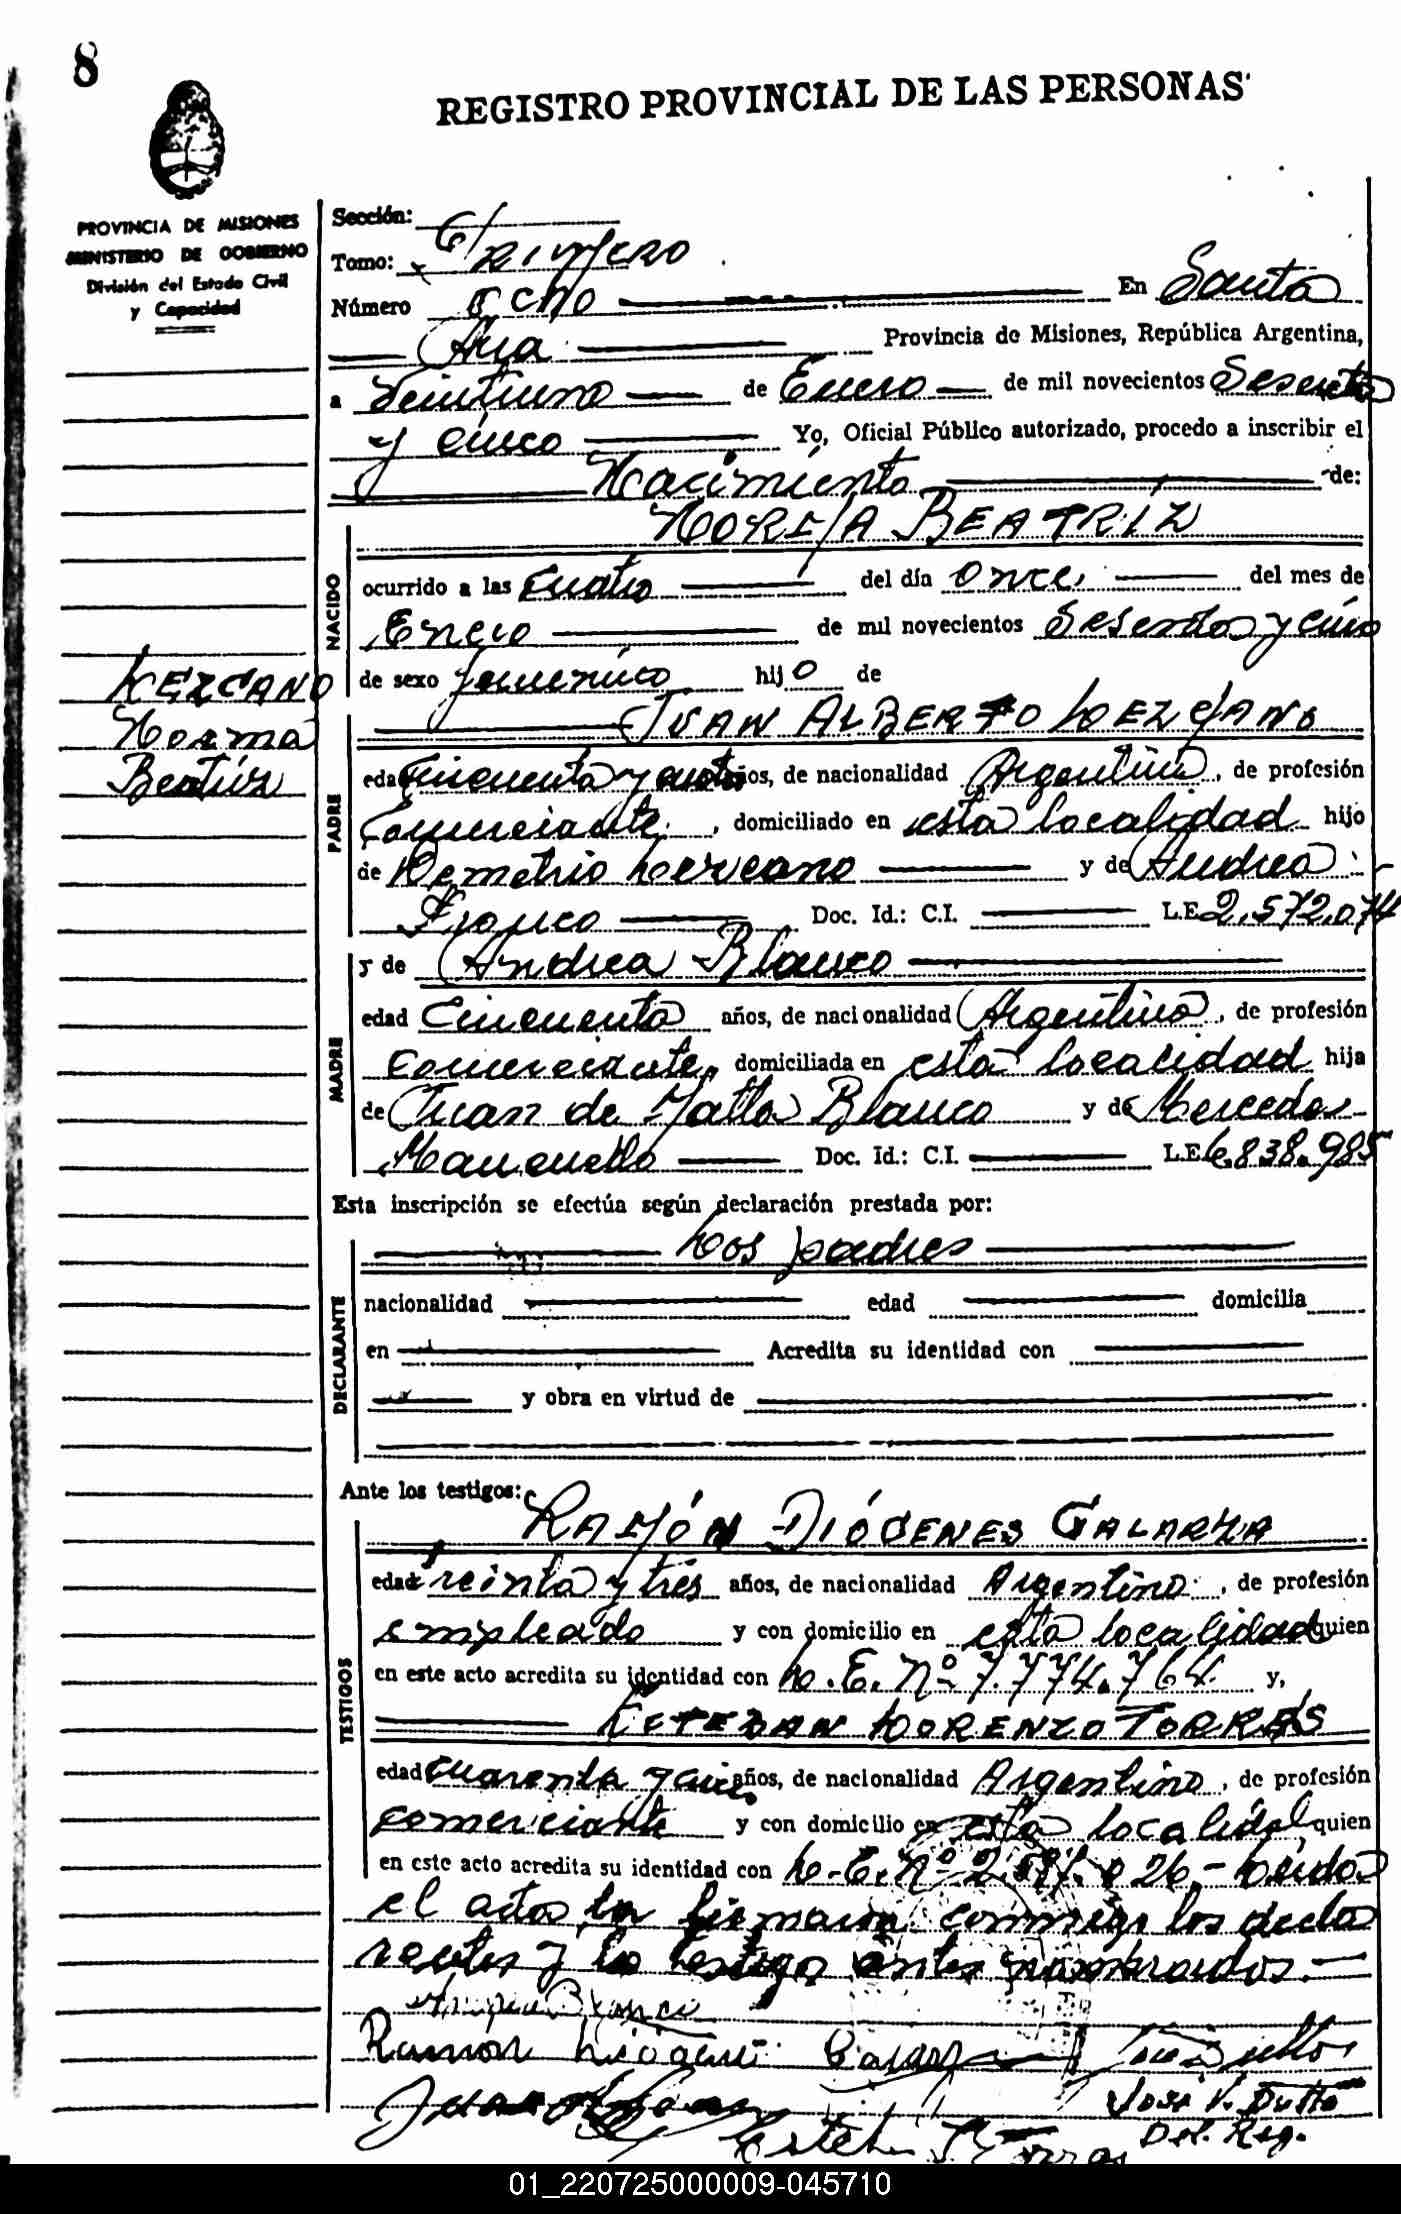 8
REGISTRO PROVINCIAL DE LAS PERSONAS
PROVINCIA DE MISIONES
MINISTERIO DE GOBIERNO
División del Estado Civil
y Capacidad
Sección:
Tomo: Primero
Número ocho En Santa
Ana Provincia de Misiones, República Argentina,
a Veintiuno de Enero de mil novecientos Sesenta
y cinco Yo, Oficial Público autorizado, procedo a inscribir el
Nacimiento de:
NORMA BEATRIZ
NACIDO
ocurrido a las cuatro del día once, del mes de
Enero de mil novecientos Sesenta y cinco
de sexo femenino hijo de
LEZCANO
Norma
Beatriz
JUAN ALBERTO LEZCANO
PADRE
edad Cincuenta y años, de nacionalidad Argentina, de profesión
Comerciante, domiciliado en esta localidad hijo
de Demetrio Lezcano y de Andrea
Franco Doc. Id.: C.I. L.E. 2.572.074
MADRE
y de Andrea Blanco
edad Cincuenta años, de nacionalidad Argentina, de profesión
Comerciante, domiciliada en esta localidad hija
de Juan de Matta Blanco y de Mercedes
Doc. Id.: C.I. L.E. 6.838.985
Esta inscripción se efectúa según declaración prestada por:
Los padres
DECLARANTE
nacionalidad edad domicilia
en Acredita su identidad con
y obra en virtud de
Ante los testigos:
RAMÓN DIÓGENES GALARZA
TESTIGOS
edad treinta y tres años, de nacionalidad Argentino, de profesión
empleado y con domicilio en esta localidad quien
en este acto acredita su identidad con L.E. Nº 7.774.764 y,
ESTEBAN LORENZO TORRES
edad cuarenta y años, de nacionalidad Argentino, de profesión
comerciante y con domicilio en esta localidad quien
en este acto acredita su identidad con L.E. Nº 026- Leída
el acta la firman conmigo los decla
rantes y los testigos antes nombrados.-
Blanco
Ramón
José V. Dutto
Del. Reg.
Torres
01_220725000009-045710